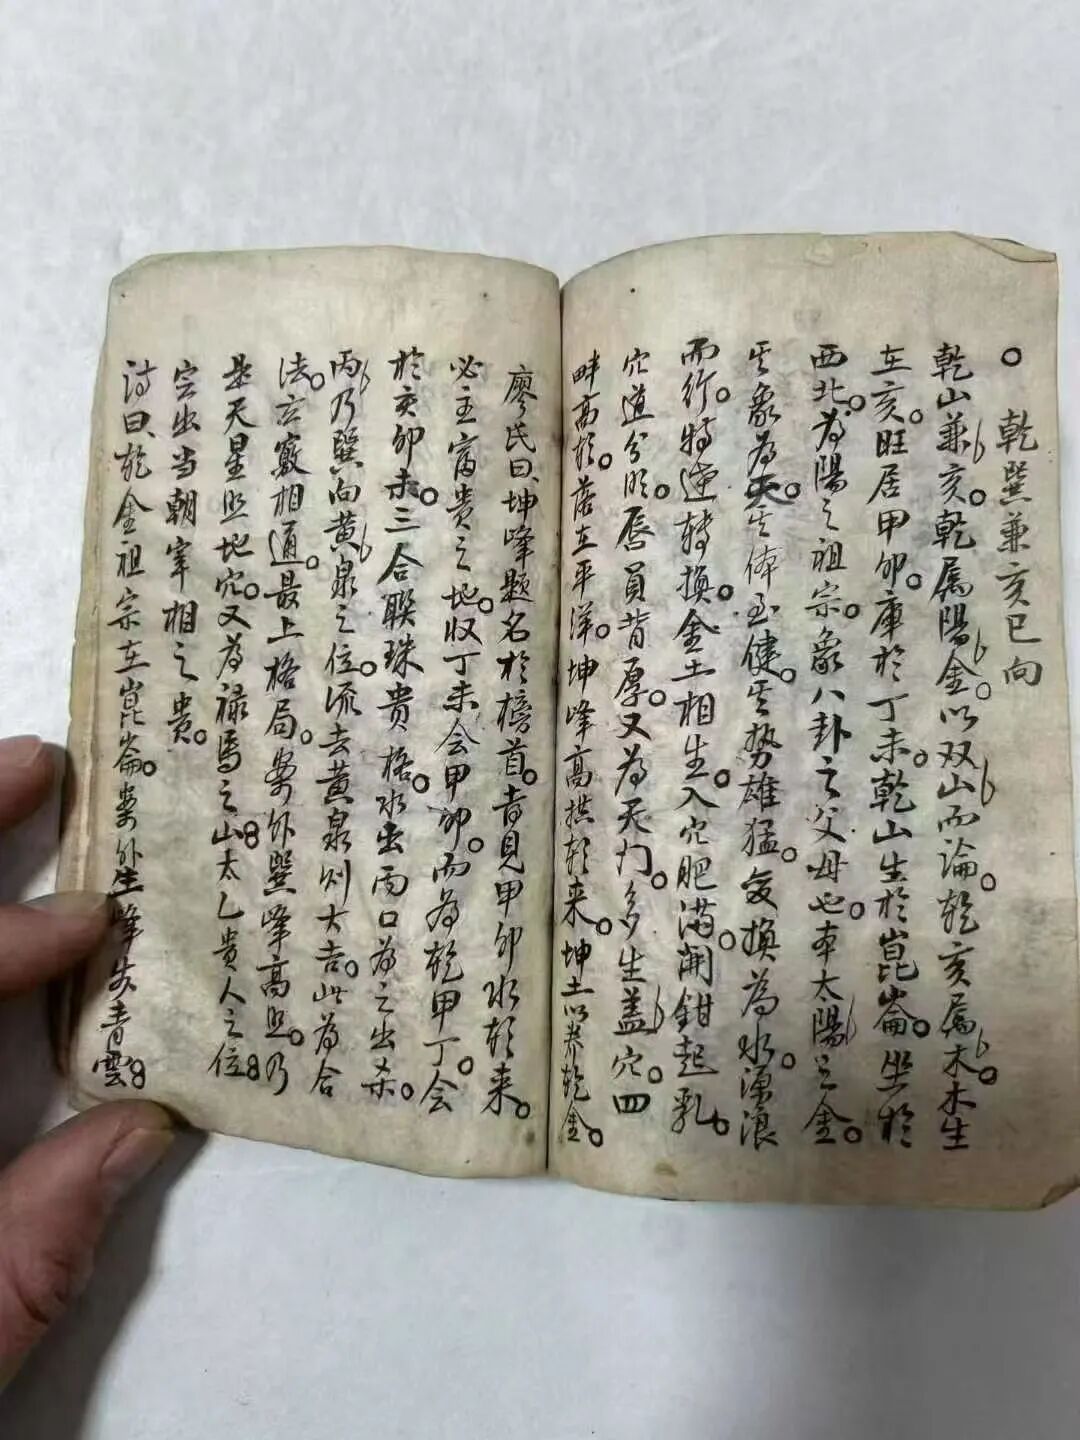 乾巽兼亥巳向
乾山兼亥乾属陽金以双山而論乾亥属木木生
在亥旺居甲卯庫於丁未乾山生於崑崙坐於
西北為陽之祖宗象八卦之父母也本太陽之金
其象為天其体至健其势雄猛变换為水湧浪
而行特逆轉换金土相生入穴肥满開鉗起乳
穴道分明唇員背厚又為天门多生盖穴四
畔高於落在平洋坤峰高拱乾来坤土以养乾金
廖氏曰坤峰題名於榜首吉見甲卯水乾来
必主富贵之地収丁未会甲卯而為乾甲丁会
於亥卯未三合聯珠贵格水出丙口為之出杀
丙乃巽向黄泉之位流去黄泉则大吉此為合
法立竅相通最上格局案外巽峰高照乃
是天星照地穴又為禄馬之山太乙贵人之位
定出当朝宰相之贵
诗曰乾金祖宗在崑崙案外生峰步青雲